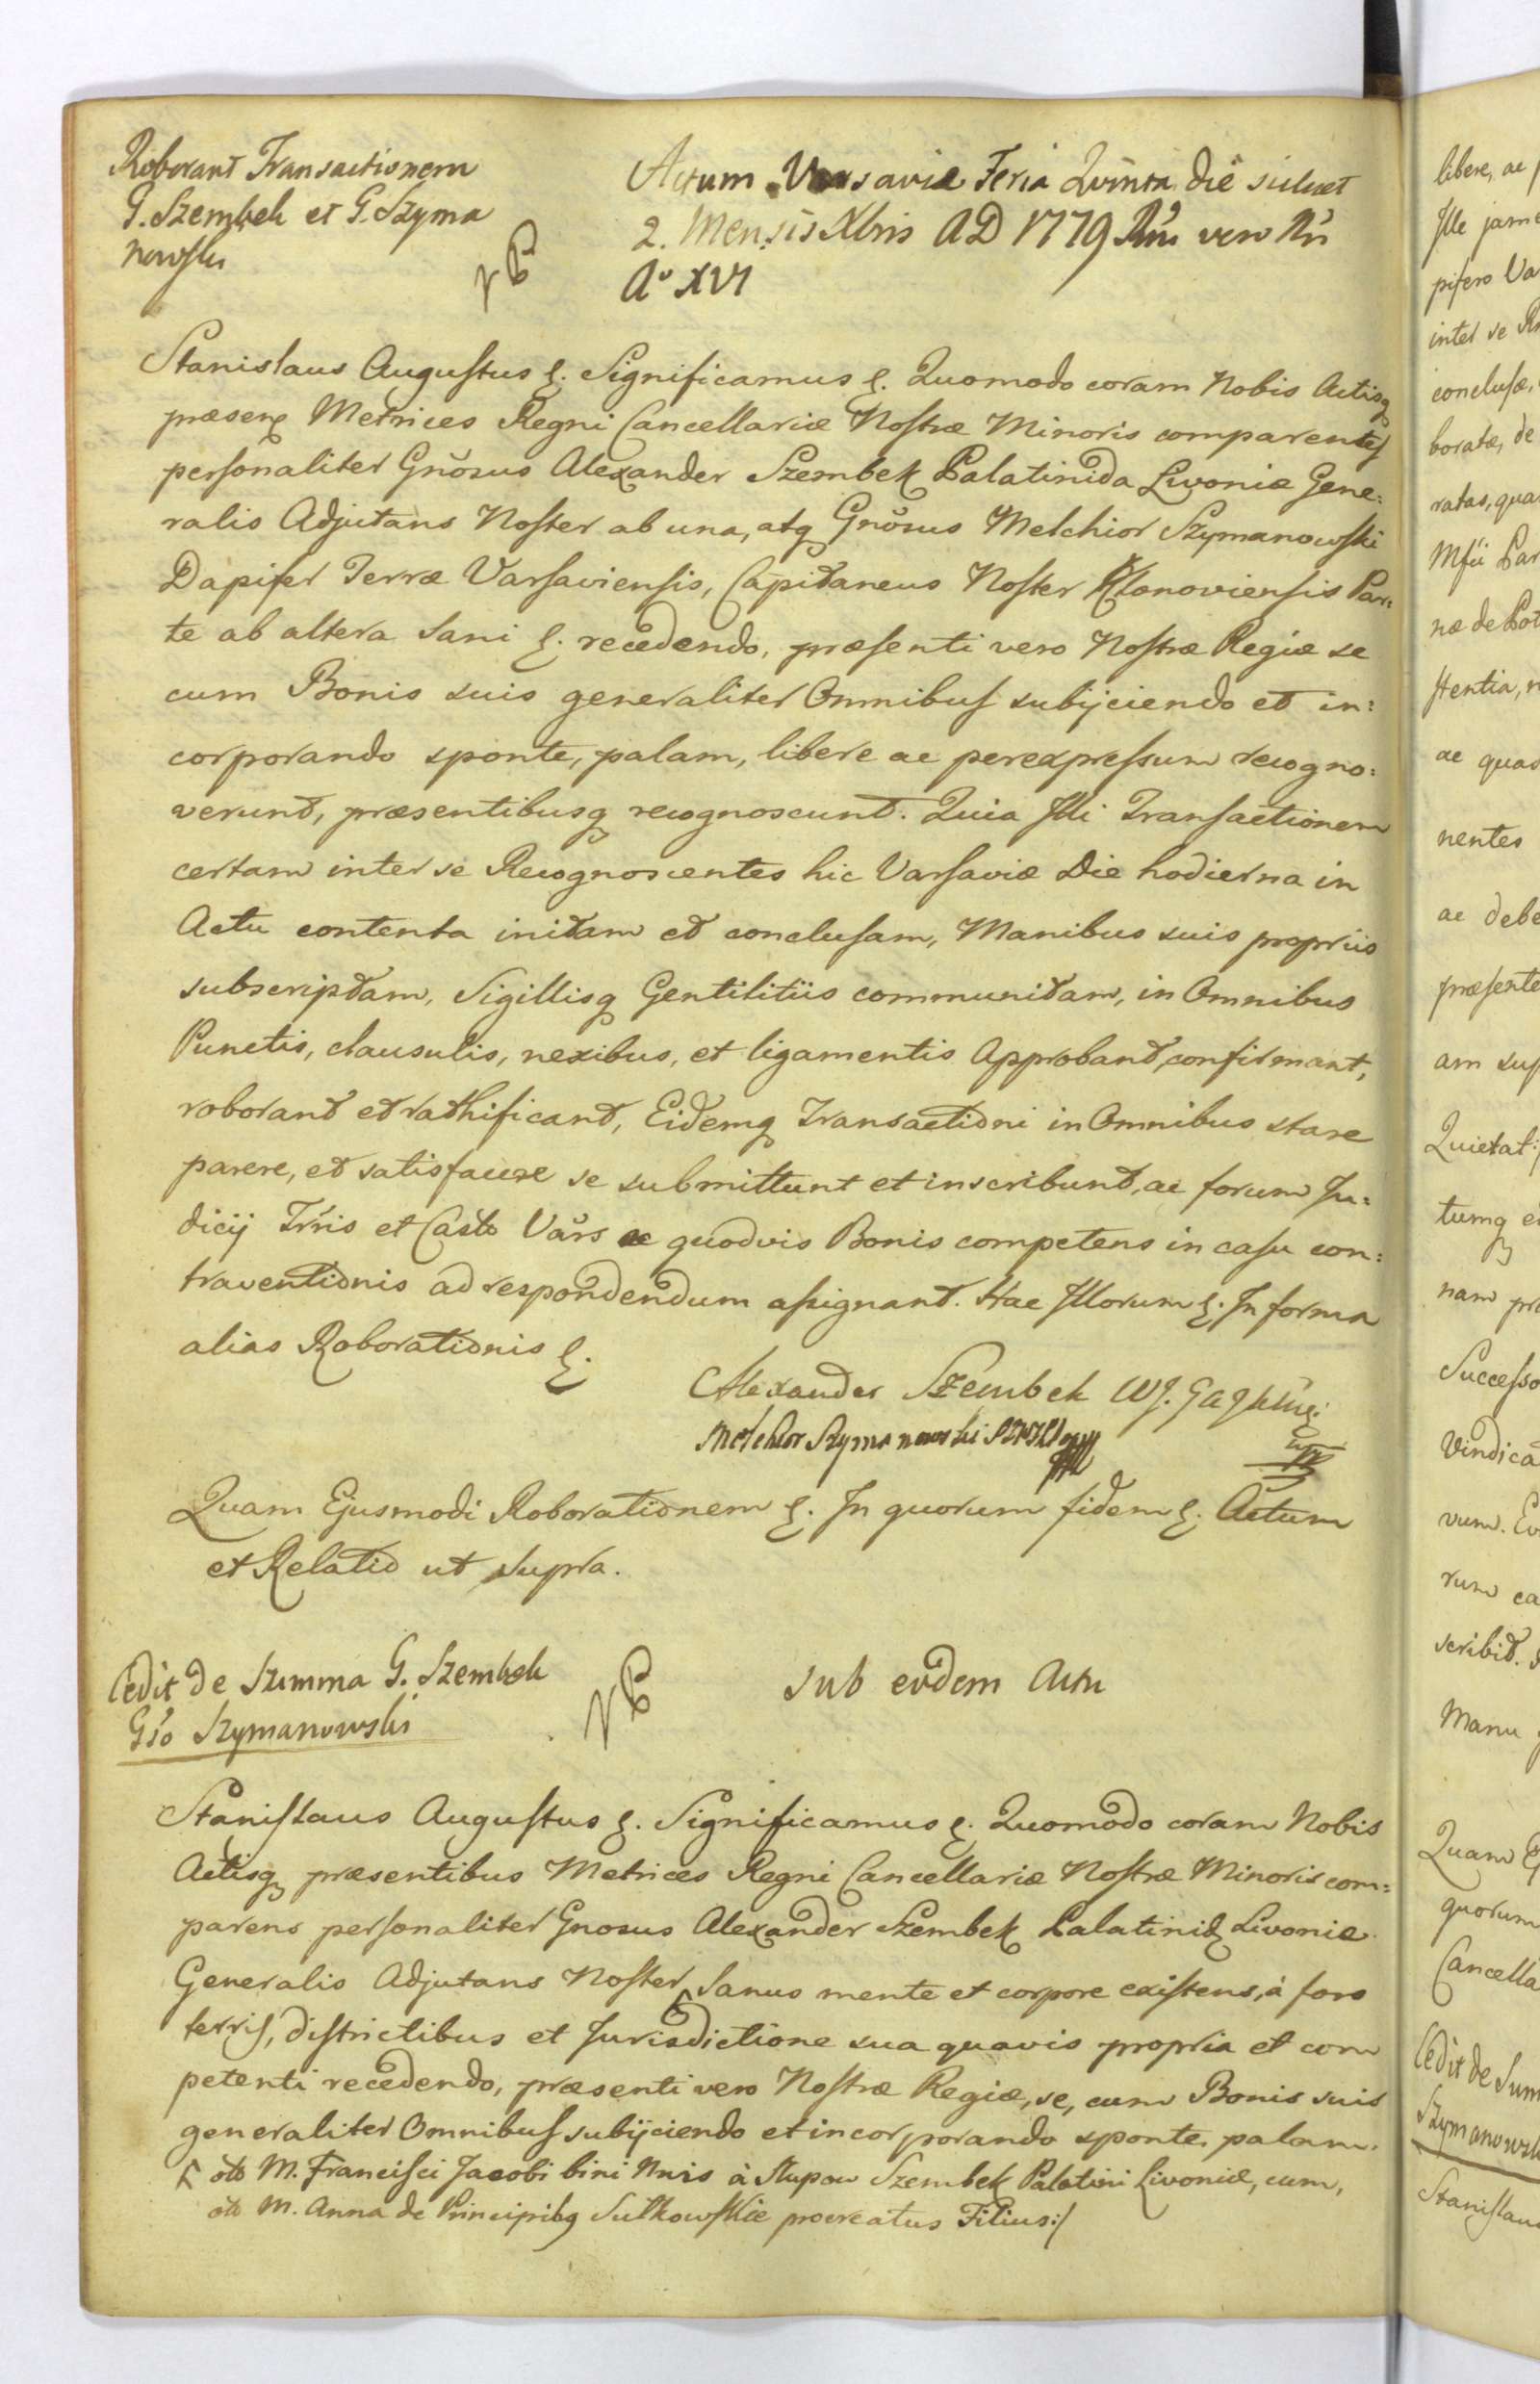 Roborant Transactionem
G. Szembek et G. Szyma
nowski
Actum Varsaviæ Feria Quinta die scilicet
2. Mensis Xbris AD 1779 Rñi vero Ñri
Aº XVI
Stanislaus Augustus &. Significamus &. Quomodo coram Nobis Actisq
præsen Metrices Regni Cancellariæ Nostræ Minoris comparentes
personaliter Gnõsus Alexander Szembek Palatinida Livoniæ Gene:
ralis Adjutans Noster ab una, atq Gnõsus Melchior Szymanowski
Dapifer Terræ Varsaviensis, Capitaneus Noster Klonoviensis Par:
te ab altera Sani &. recedendo, præsenti vero Nostræ Regiæ se
cum Bonis suis generaliter Omnibus subijciendo et in:
corporando sponte, palam, libere ac perexpressum recogno:
verunt, præsentibusq recognoscunt. Quia Illi Transactionem
certam inter se Recognoscentes hic Varsaviæ Die hodierna in
Actu contenta initam et conclusam, Manibus suis propriis
subscriptam, Sigillisq Gentilitiis communitam, in Omnibus
Punctis, clausulis, nexibus, et ligamentis Approbant, confirmant,
roborant et rathificant, Eidemq Transactioni in Omnibus stare
parere, et satisfacere se submittunt et inscribunt, ac forum Ju:
dicij Trris et Casto Vars ac quodvis Bonis competens in casu con:
traventionis ad respondendum assignant. Hac Illorum &. In forma
alias Roborationis &.
Alexander Szembek
Melchior Szymanowski
Quam Ejusmodi Roborationem &. In quorum fidem &. Actum
et Relatio ut supra.
Cedit de Summa G. Szembek
Gso Szymanowski
Sub eodem Actu
Stanislaus Augustus &. Significamus &. Quomodo coram Nobis
Actisq præsentibus Metrices Regni Cancellariæ Nostræ Minoris com:
parens personaliter Gnosus Alexander Szembek Palatinid Livoniæ
Generalis Adjutans Noster, Sanus mente et corpore existens, à foro
terris, districtibus et Jurisdictione sua quavis propria et com
petenti recedendo, præsenti vero Nostræ Regiæ, se, cum Bonis suis
generaliter Omnibus subijciendo et incorporando sponte, palam,
olb M. Francisci Jacobi bini Nnis à Slupow Szembek Palatini Livoniæ, cum,
olb M. Anna de Principibq Sulkowskie procreatus Filius:/
libere, ac
Ille jam
pifero Va
inter se
conclusæ,
boratæ, de
ratas, qua
Mſii Par
næ de Pot
stentia, n
ac quas
nentes
ac debe
præsente
am sup
Quietat:
tumq e
nam pr
Successo
Vindica
vum. Ev
rum ca
scribit.
Manu
Quam E
quorum
Cancella
Cedit de Sum
Szymanowsk
Stanislau